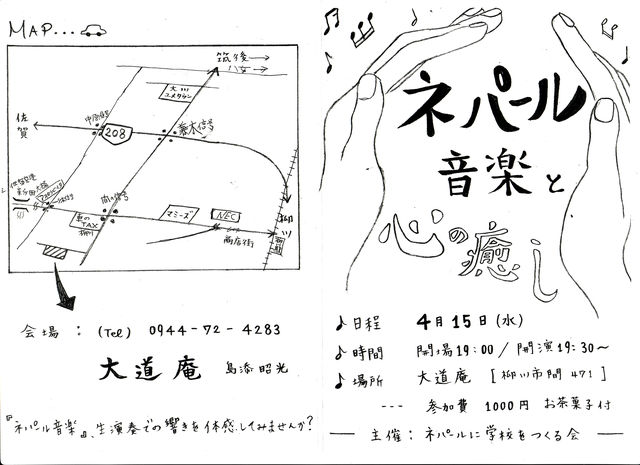 MAP...
筑後→
八女→
大川
ゆめタウン
佐賀
中原信号
208
兼木信号
車のTAX
柳川
マミーズ
NEC
商店街
柳川
会場 : (Tel) 0944-72-4283
大道庵 島添昭光
『ネパール音楽』、生演奏での響きを体感してみませんか?
ネパール
音楽と
心の癒し
♪日程 4月15日(水)
♪時間 開場19:00/開演19:30〜
♪場所 大道庵 [柳川市間471]
--- 参加費 1000円 お茶菓子付
— 主催: ネパールに学校をつくる会 —